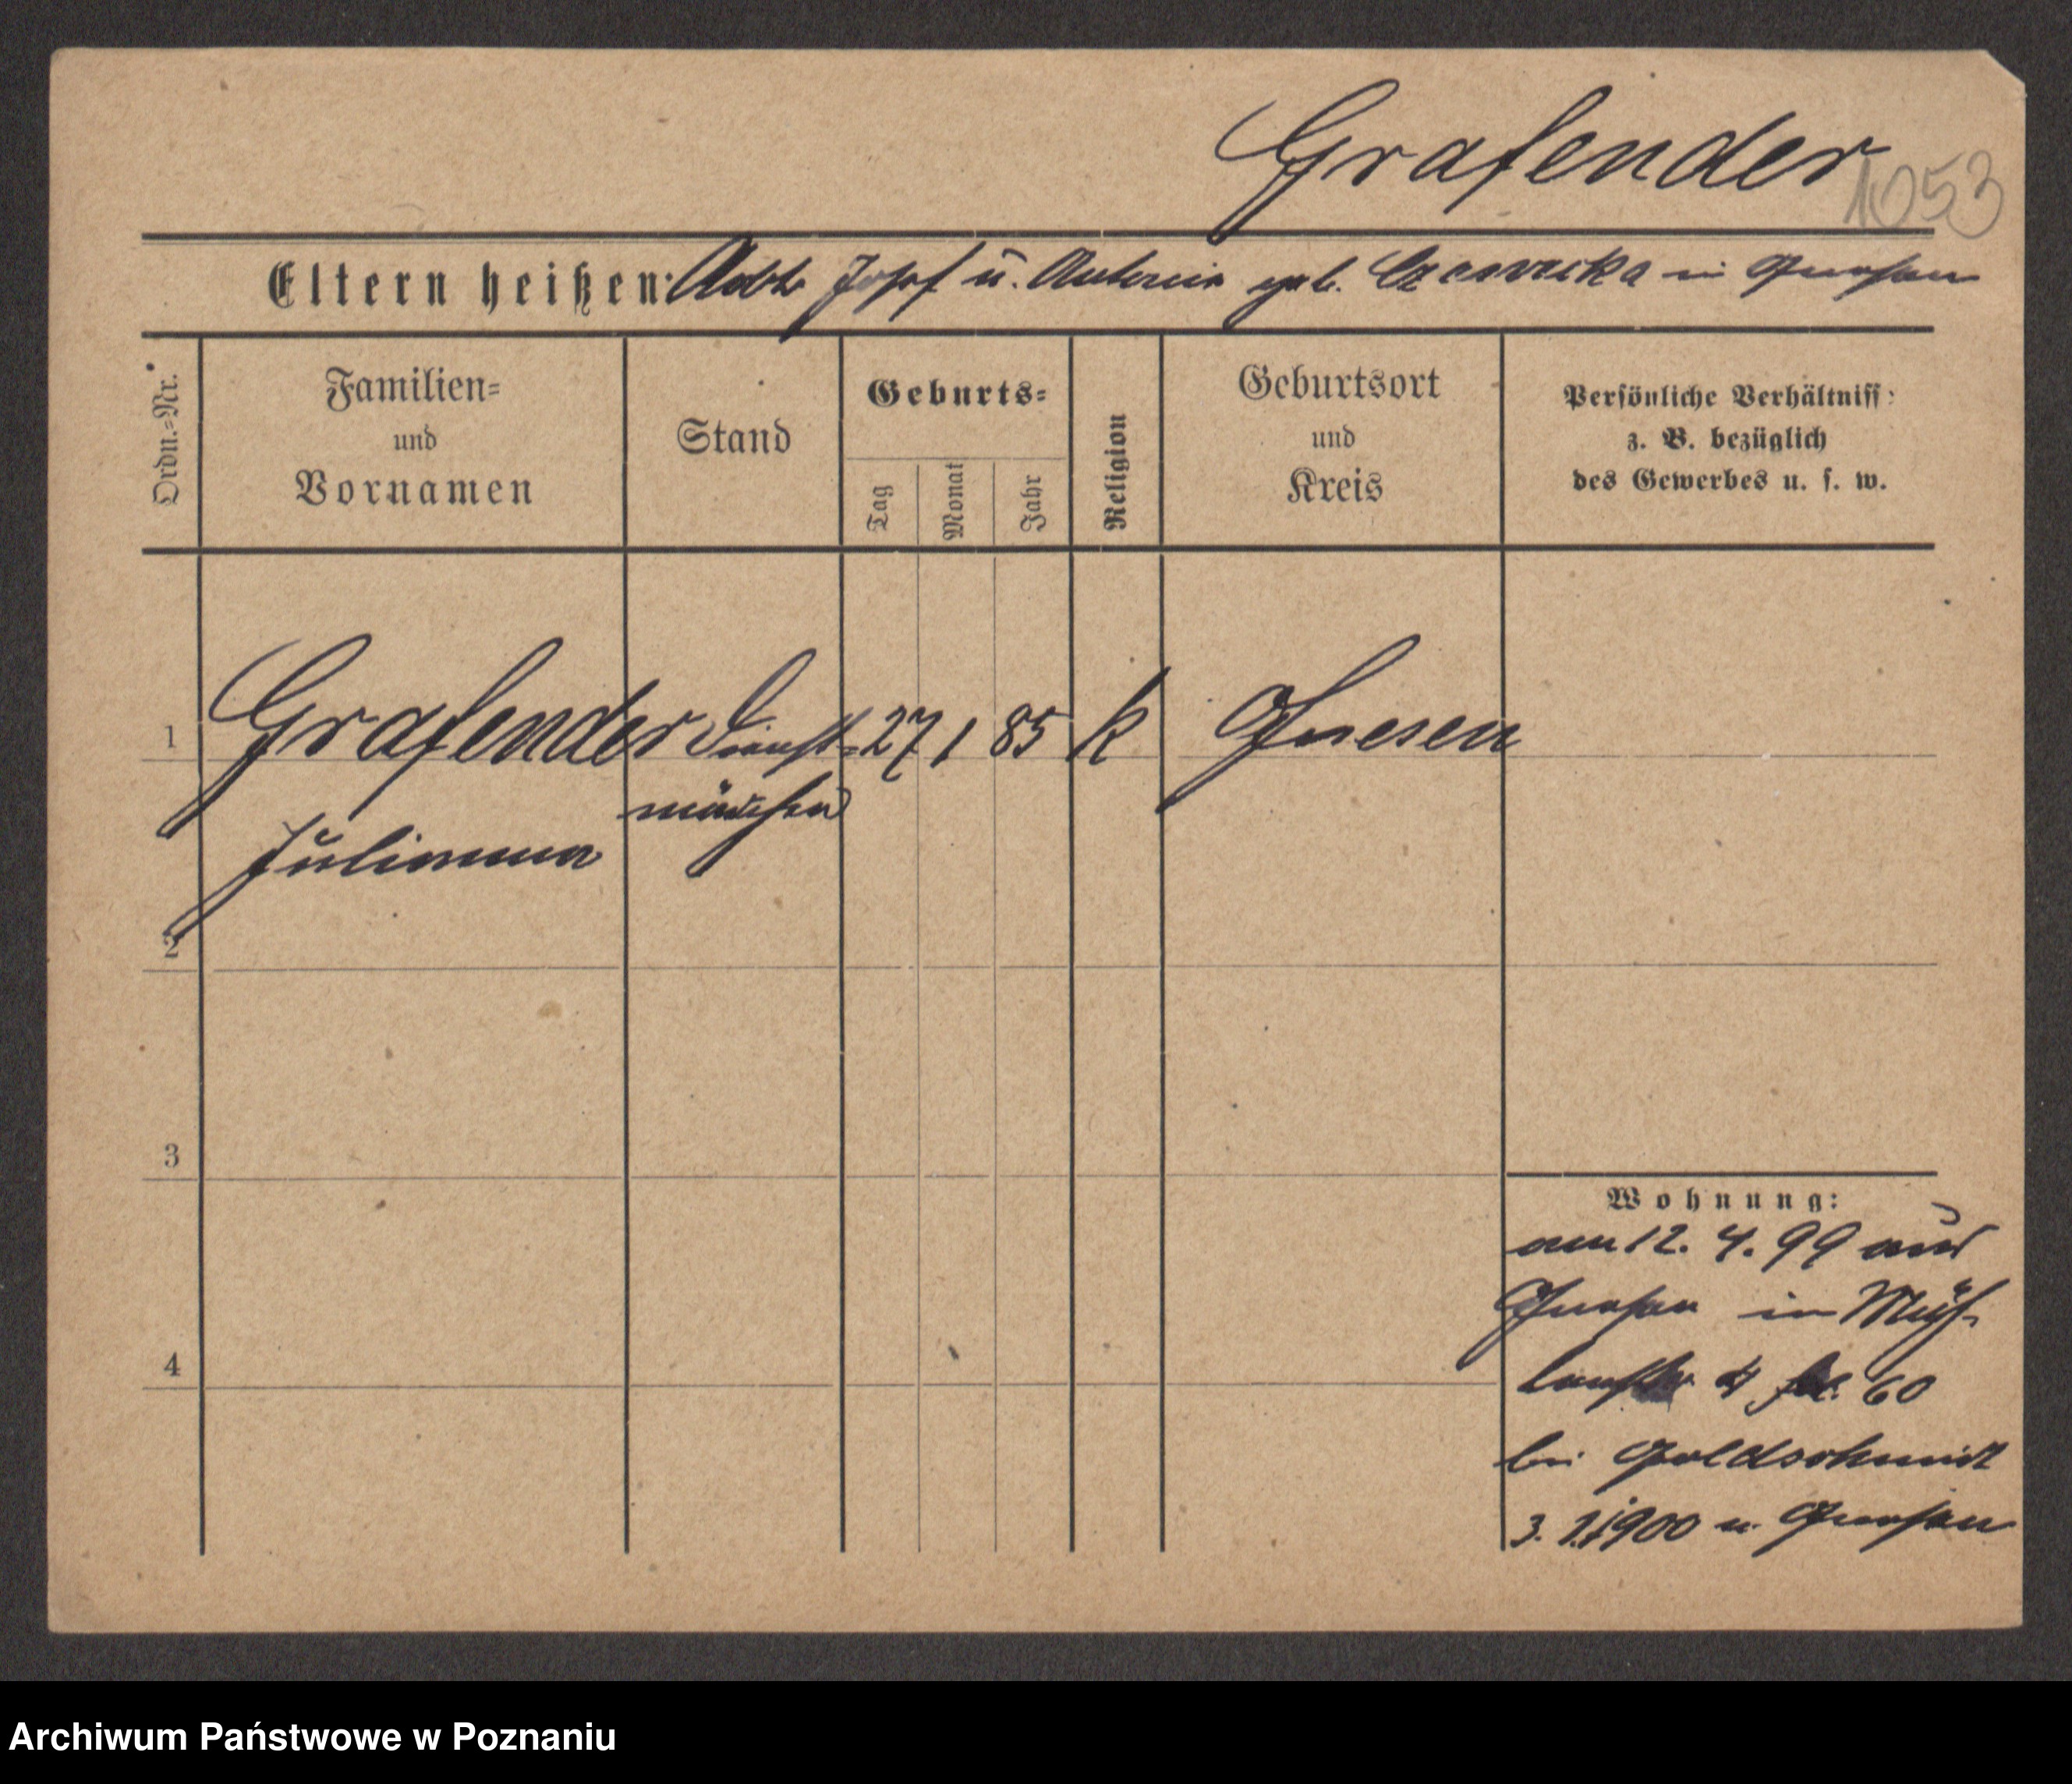 Grafender
1053
Eltern heißen: Arb. Josef u. Antonie geb. in Gnesen
Ordn.=Nr.
Familien=
und
Vornamen
Stand
Geburts=
Tag
Monat
Jahr
Religion
Geburtsort
und
Kreis
Persönliche Verhältniss
z. B. bezüglich
des Gewerbes u. s. w.
1 Grafender Dienst= 27 1 85 k Gnesen
mädchen
Julianna
2
3
4
Wohnung:
am 12. 4. 99 aus
Gnesen in
60
bei Goldschmidt
3. 1. 1900 n. Gnesen
Archiwum Państwowe w Poznaniu